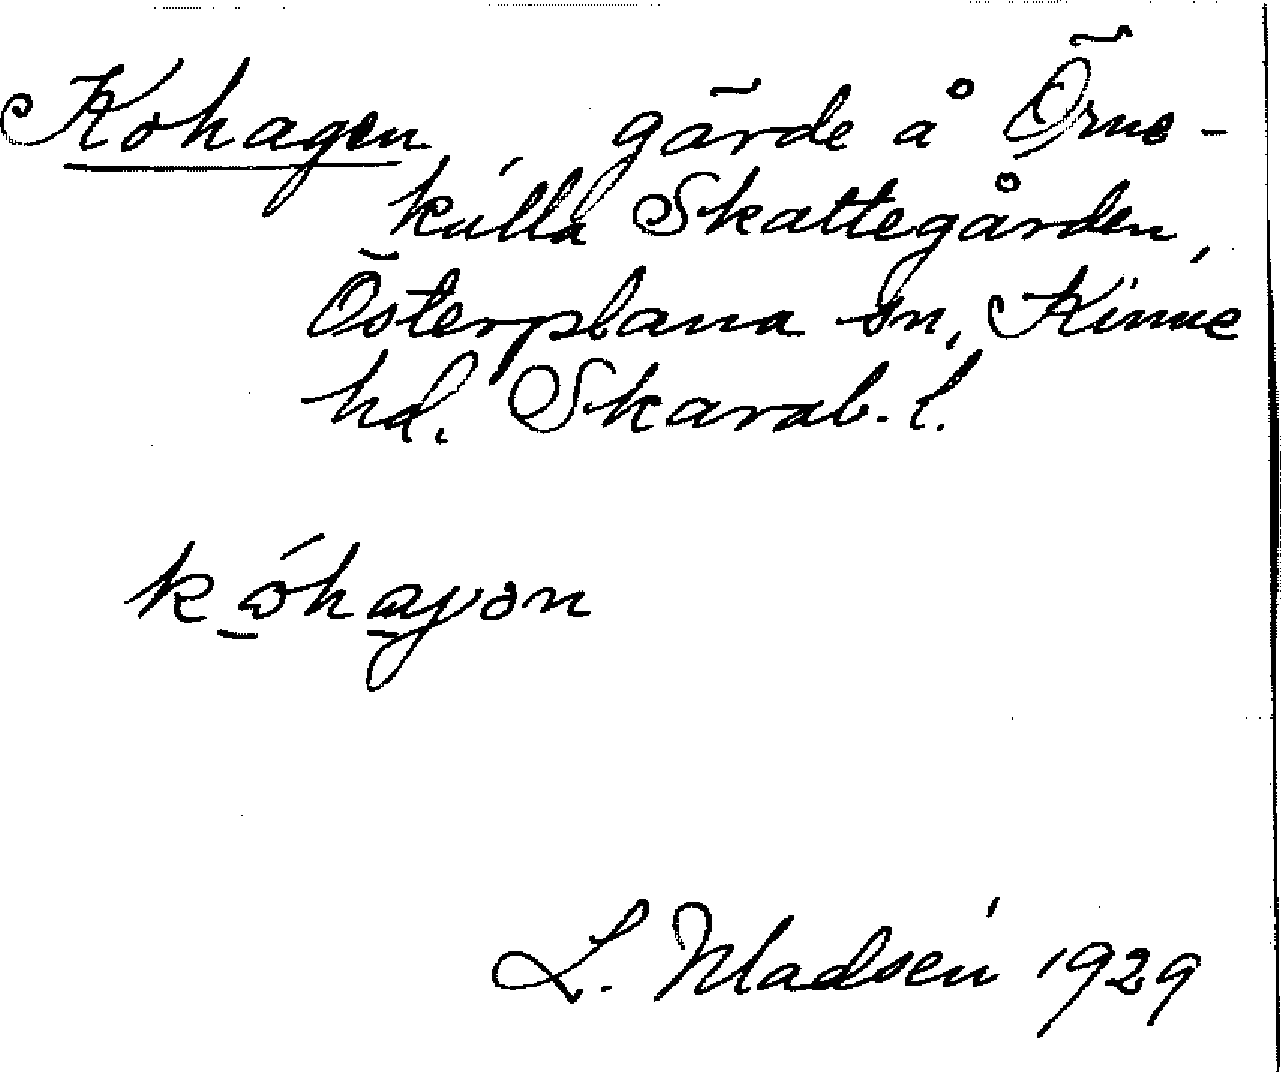 Kohagen gärde å Örne-
kulla Skattegården,
Österplana sn, Kinne
hd. Skarab. l.
kóhaγən
L. Madsén 1929